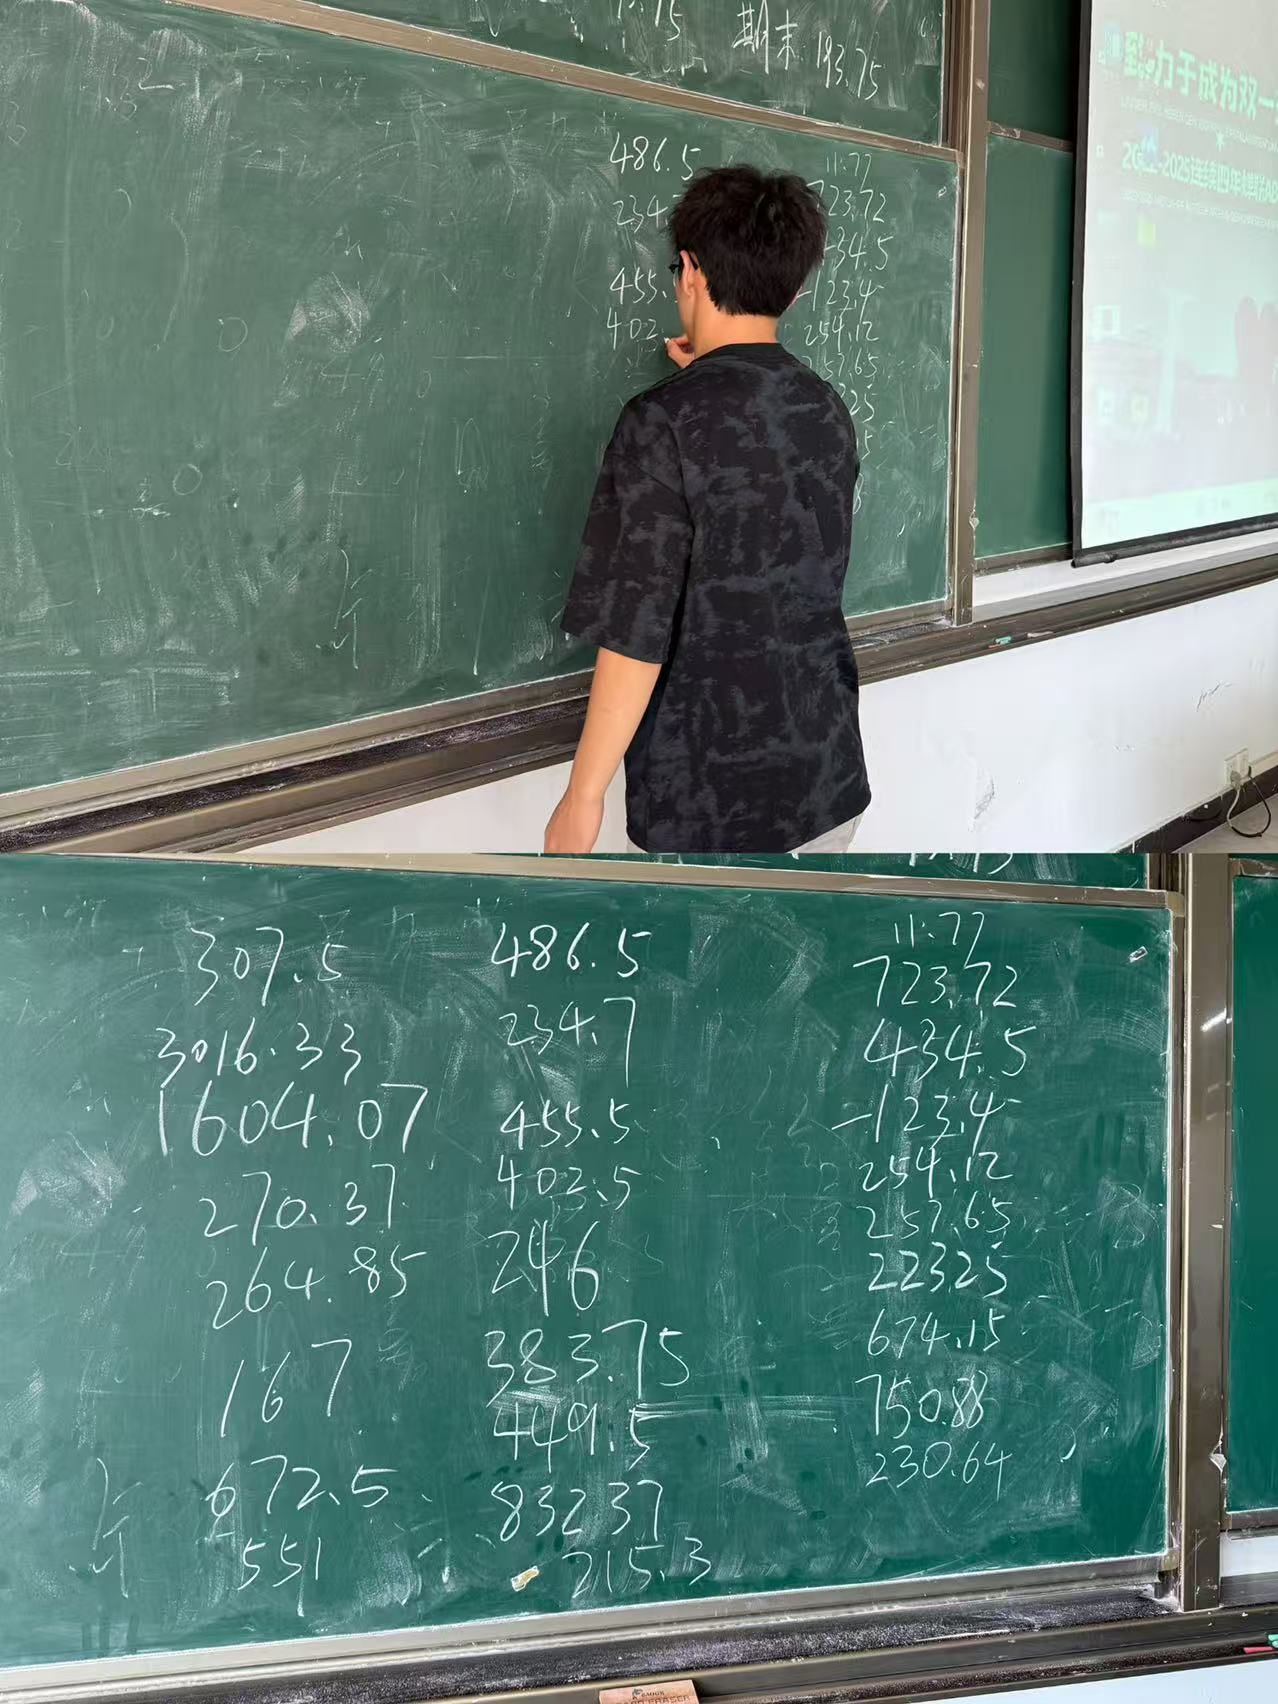 期末 193.75
致力于成为双一
486.5
234.
455.
402
11.77
723.72
434.5
-123.4
254.12
257.65
25
5
8
307.5
3016.33
1604.07
270.37
264.85
167
672.5
551
486.5
234.7
455.5
402.5
246
383.75
449.5
83237
215.3
11.77
723.72
434.5
-123.4
254.12
257.65
22325
674.15
750.88
230.64